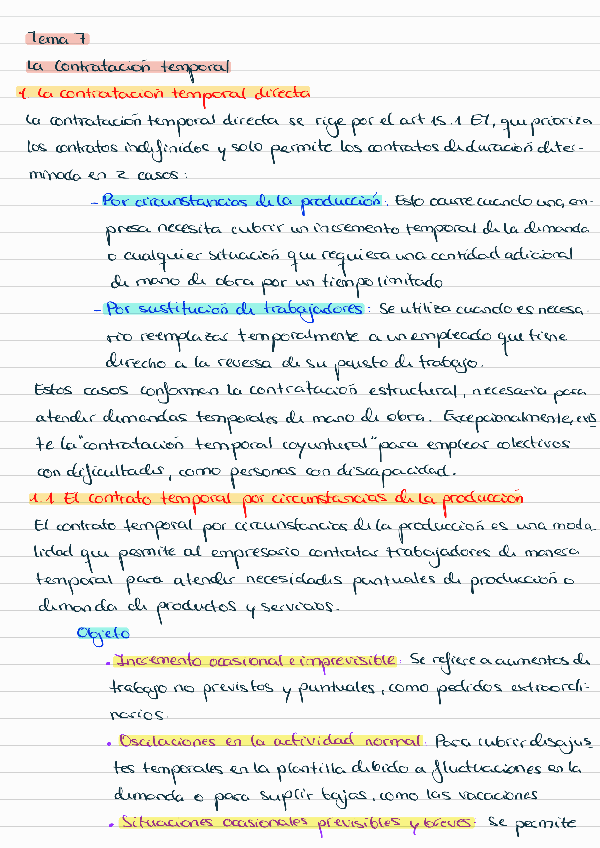 Tema 7
La contratación temporal
1. La contratación temporal directa
La contratación temporal directa se rige por el art 15.1 ET, que prioriza
los contratos indefinidos y solo permite los contratos de duración deter-
minada en 2 casos:
- Por circunstancias de la producción: Esto ocurre cuando una em-
presa necesita cubrir un incremento temporal de la demanda
o cualquier situación que requiera una cantidad adicional
de mano de obra por un tiempo limitado
- Por sustitución de trabajadores: Se utiliza cuando es necesa-
rio reemplazar temporalmente a un empleado que tiene
derecho a la reversa de su puesto de trabajo.
Estos casos conforman la contratación estructural, necesaria para
atender demandas temporales de mano de obra. Excepcionalmente, exis
te la "contratación temporal coyuntural" para emplear colectivos
con dificultades, como personas con discapacidad.
1.1 El contrato temporal por circunstancias de la producción
El contrato temporal por circunstancias de la producción es una moda
lidad que permite al empresario contratar trabajadores de manera
temporal para atender necesidades puntuales de producción o
demanda de productos y servicios.
Objeto
• Incremento ocasional e imprevisible: Se refiere a aumentos de
trabajo no previstos y puntuales, como pedidos extraordi-
narios.
• Oscilaciones en la actividad normal: Para cubrir desajus
tes temporales en la plantilla debido a fluctuaciones en la
demanda o para suplir bajas, como las vacaciones
• Situaciones ocasionales previsibles y breves: Se permite